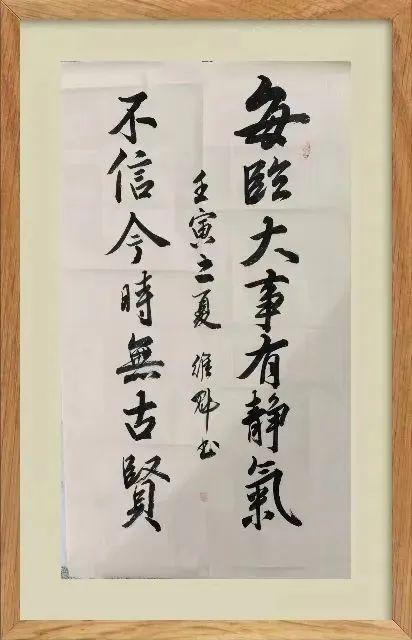 每臨大事有靜氣
不信今時無古賢
壬寅之夏 維魁书